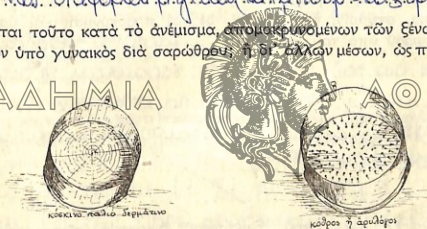 ται τοῦτο κατὰ τὸ ἀνέμισμα, ἀπομακρυνομένων τῶν ξένω
ν ὑπὸ γυναικὸς διὰ σαρώθρου; ἢ δι' ἄλλων μέσων, ὡς π
ΑΔΗΜΙΑ ΑΘ
κόσκινο παλιὸ δερμάτινο
κόθρος ἢ ἀρυλόγος